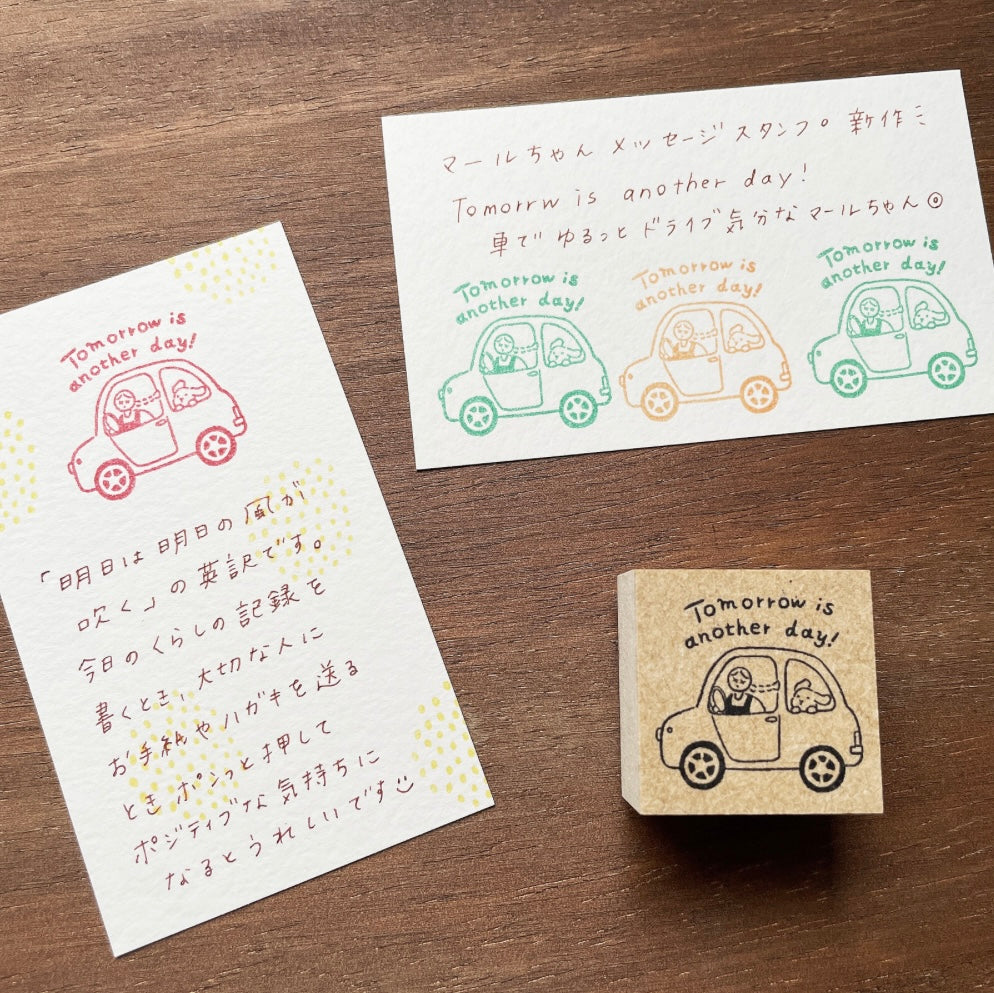 マールちゃん メッセージスタンプ。新作ミ
Tomorrw is another day!
車で ゆるっと ドライブ気分な マールちゃん◎
Tomorrow is
another day!
Tomorrow is
another day!
Tomorrow is
another day!
Tomorrow is
another day!
「明日は明日の風が
吹く」の英訳です。
今日のくらしの記録を
書くとき、大切な人に
お手紙やハガキを送る
ときポンっと押して
ポジティブな気持ちに
なるとうれしいです
Tomorrow is
another day!